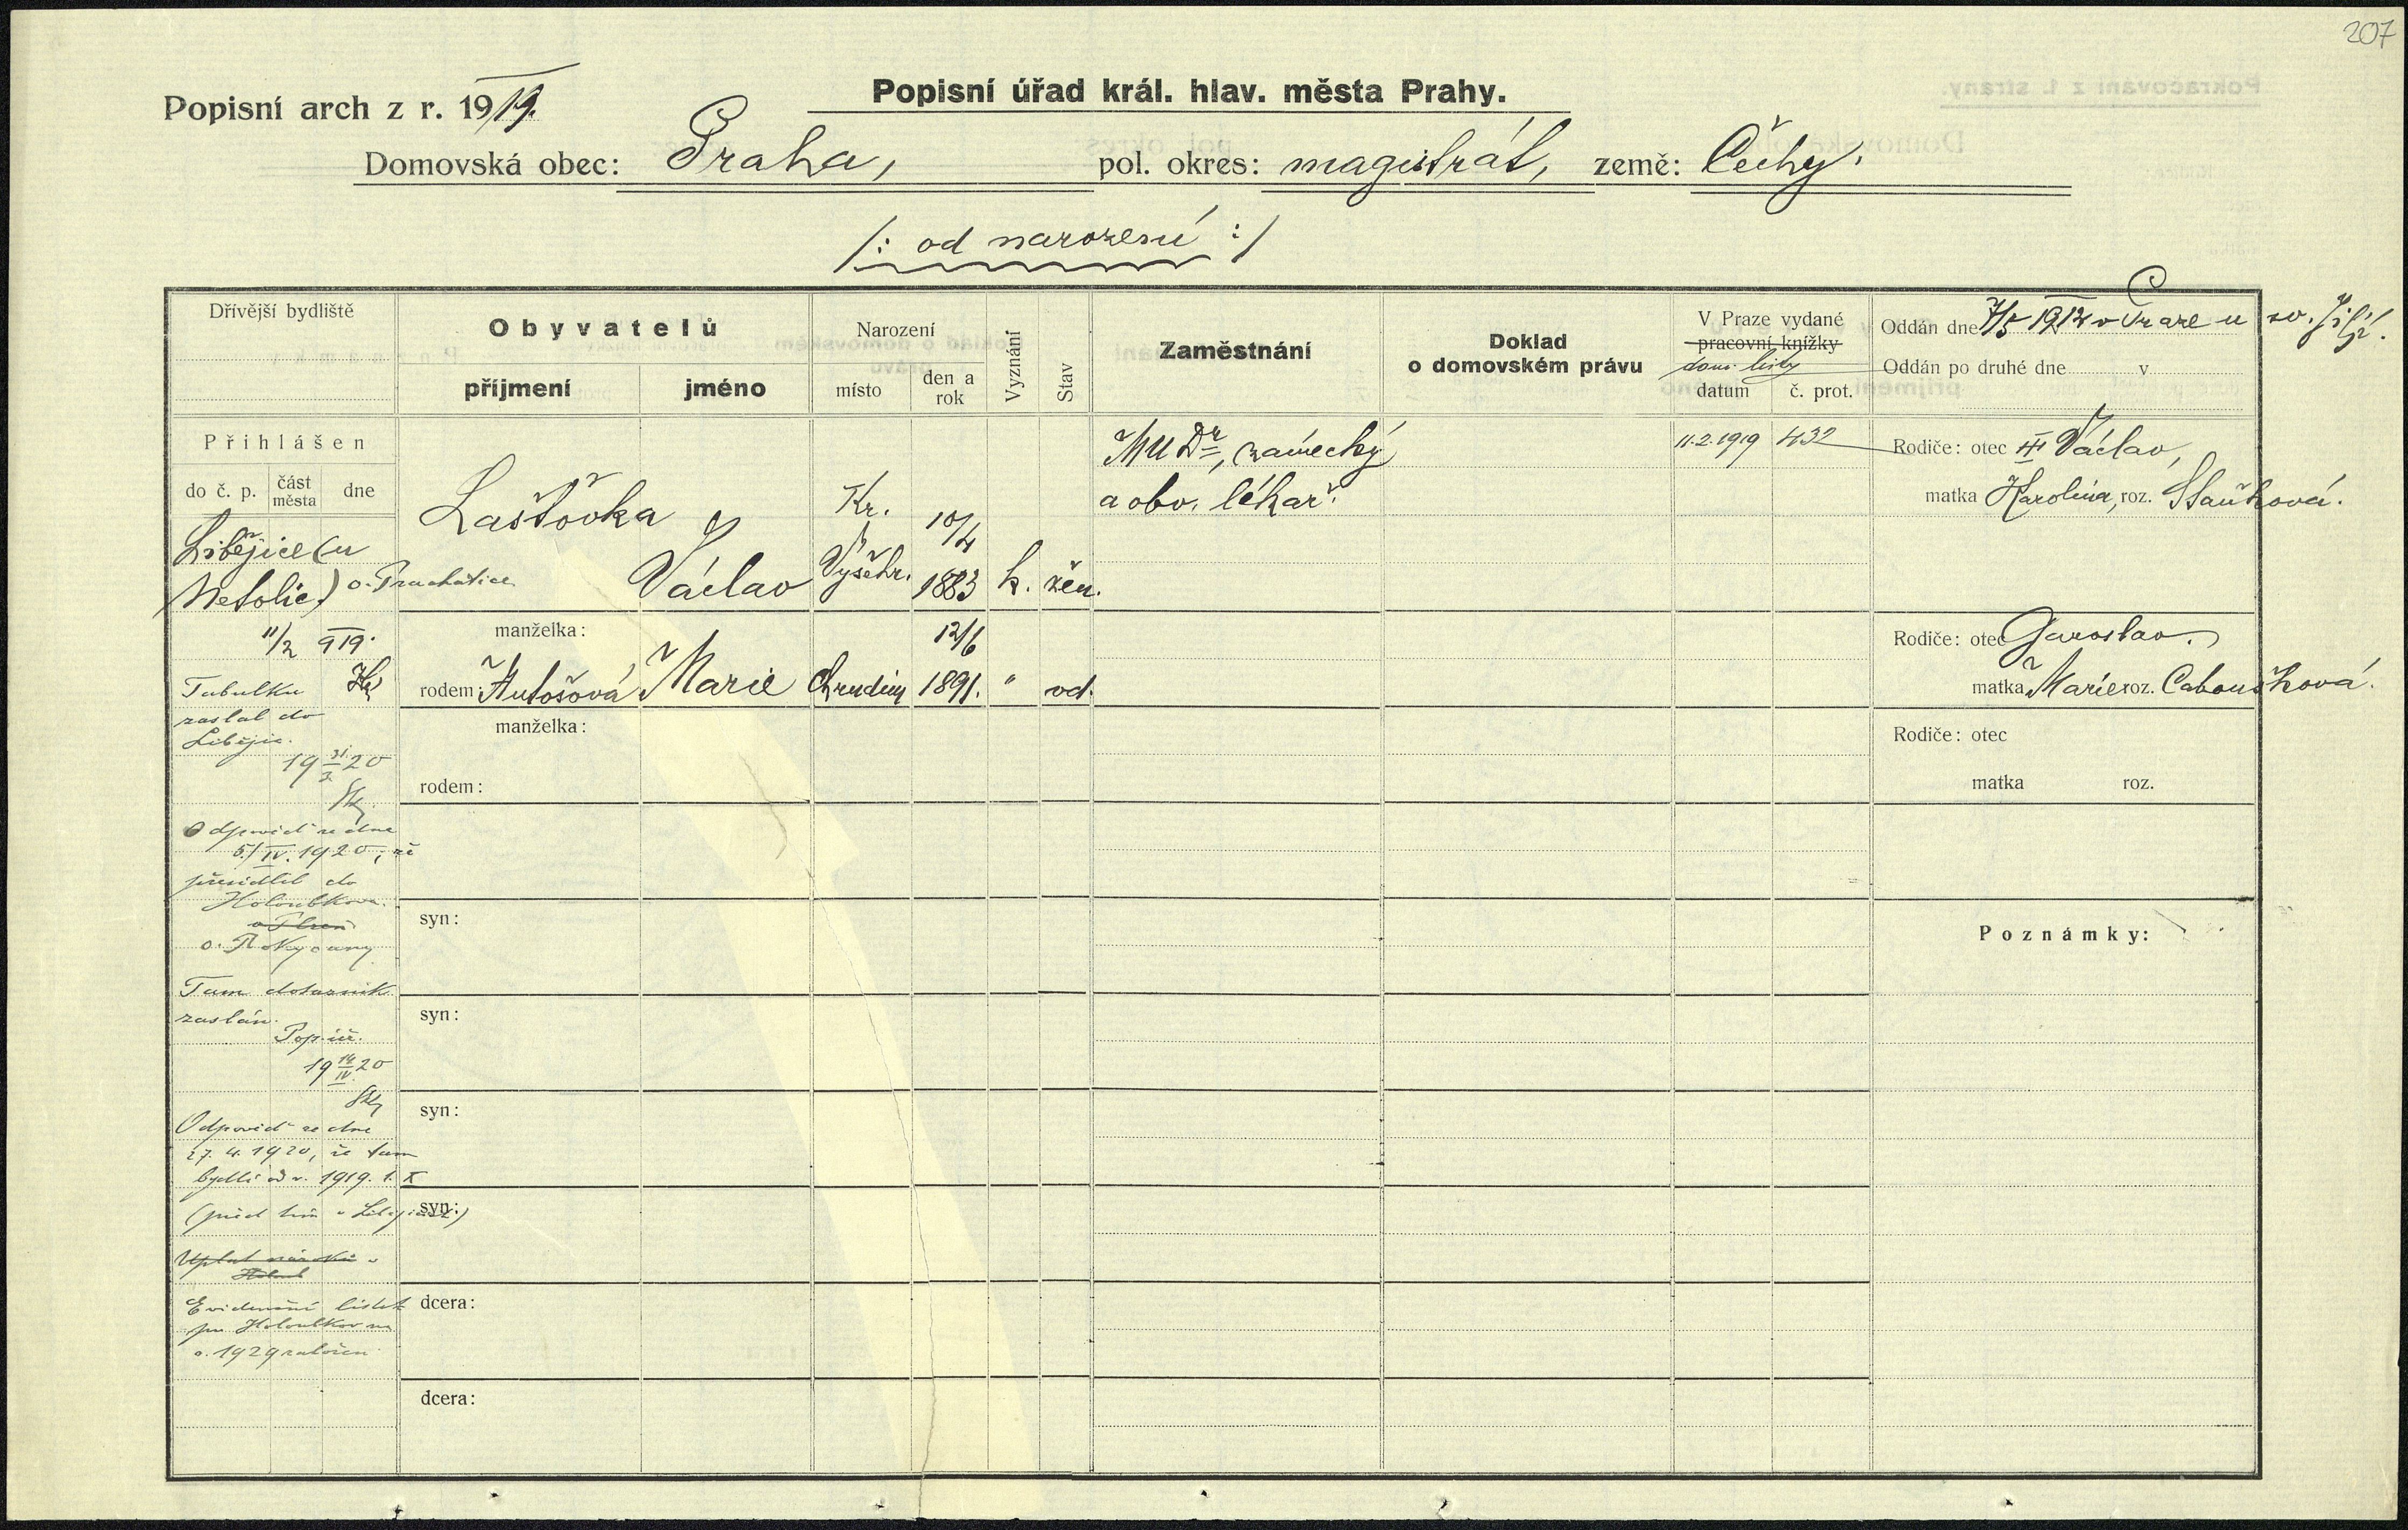 207
Popisní arch z r. 1919.
Popisní úřad král. hlav. města Prahy.
Domovská obec: Praha, pol. okres: magistrát, země: Čechy.
/: od narození :/
Dřívější bydliště
Obyvatelů
příjmení
jméno
Narození
místo
den a rok
Vyznání
Stav
Zaměstnání
Doklad
o domovském právu
V Praze vydané
pracovní knížky
dom. listy
datum
č. prot.
Oddán dne 7/5 1912 v Praze u sv. Jiljí.
Oddán po druhé dne v
Přihlášen
do č. p.
část města
dne
Libějice (u
Netolic) o. Prachatice
11/2 919.
Tabulka
zaslal do
Libějic.
19 31/3 20
Odpověď ze dne
5./IV. 1920, že
přesídlil do
Holoubkova
o. Plzeň
o. Rokycany
Tam dotazník
zaslán.
Pop. úř.
19 14/IV. 20
Odpověď ze dne
27. 4. 1920, že tam
bydlí od r. 1919. 1. X
(před tím v Libějicích)
Evidenční lístek
pro Holoubkov na
r. 1929 založen
Laštovka
Václav
Kr. Vyšehr.
10/4 1883
k.
žen.
MUDr, zámecký
a obv. lékař.
11.2.1919 432
Rodiče: otec III Václav,
matka Karolina, roz. Staňková.
manželka:
rodem: Autošová Marie Chrudim 12/6 1891. " vd.
Rodiče: otec Jaroslav.
matka Marie roz. Caboušková.
manželka:
rodem:
Rodiče: otec
matka roz.
syn:
Poznámky:
syn:
syn:
syn:
dcera:
dcera: